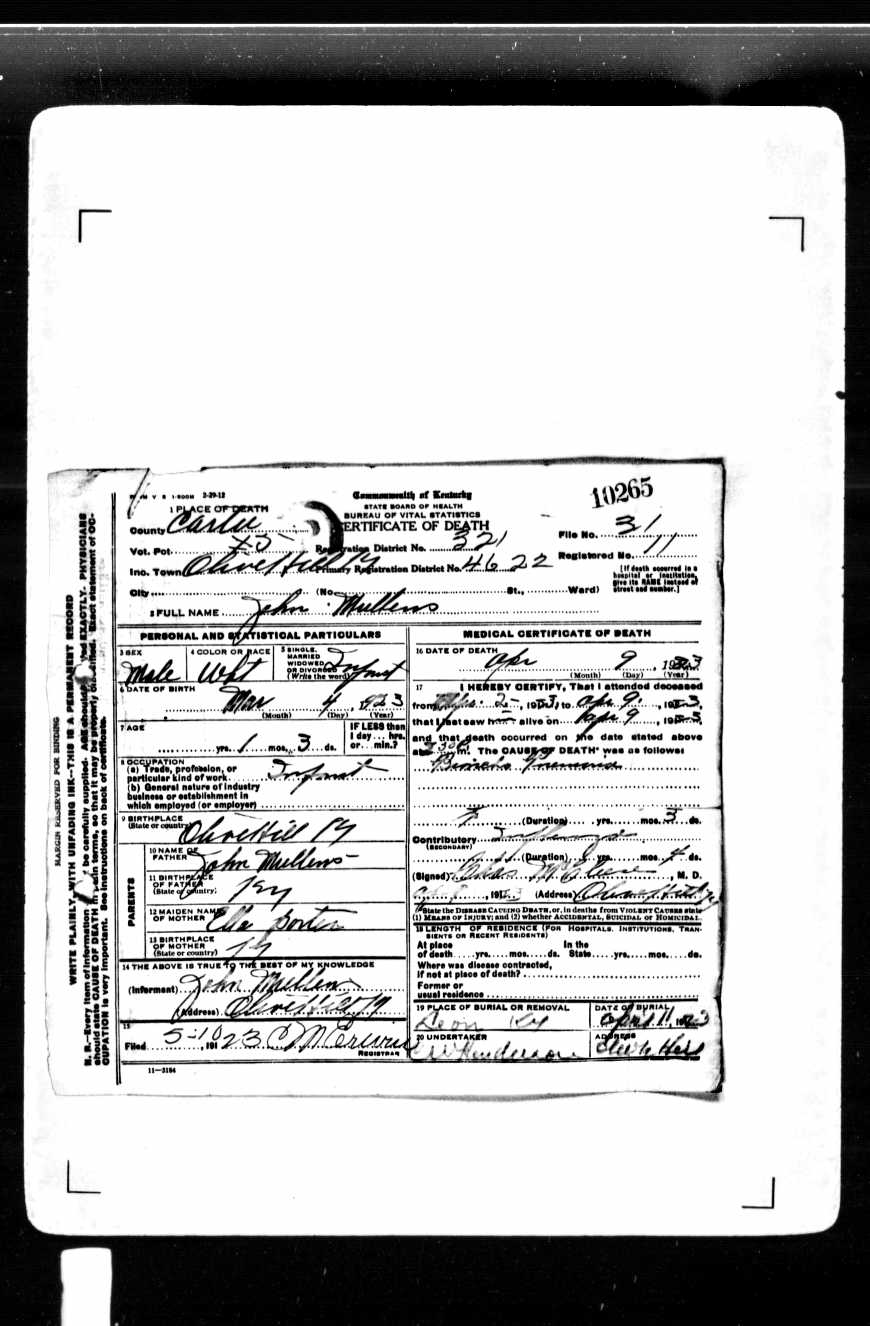 FORM V S 1-500M 2-29-12
Commonwealth of Kentucky
STATE BOARD OF HEALTH
BUREAU OF VITAL STATISTICS
CERTIFICATE OF DEATH
10265
1 PLACE OF DEATH
County Carter
Vot. Pct.
Registration District No. 321
File No. 31
Inc. Town Olive Hill Ky
Primary Registration District No. 4622
Registered No. 11
City (No. St., Ward)
[If death occurred in a hospital or institution, give its NAME instead of street and number.]
2 FULL NAME John Mullens
PERSONAL AND STATISTICAL PARTICULARS
3 SEX
Male
4 COLOR OR RACE
Wht
5 SINGLE, MARRIED WIDOWED OR DIVORCED (Write the word) Infant
6 DATE OF BIRTH
Mar 4, 1923
(Month) (Day) (Year)
7 AGE
yrs. 1 mos. 3 ds.
IF LESS than 1 day... hrs. or... min.?
8 OCCUPATION
(a) Trade, profession, or
particular kind of work Infant
(b) General nature of industry
business or establishment in
which employed (or employer)
9 BIRTHPLACE
(State or country) Olive Hill Ky
PARENTS
10 NAME OF FATHER John Mullens
11 BIRTHPLACE OF FATHER (State or country) Ky
12 MAIDEN NAME OF MOTHER Ella Porter
13 BIRTHPLACE OF MOTHER (State or country) Ky
14 THE ABOVE IS TRUE TO THE BEST OF MY KNOWLEDGE
(Informant) John Mullen
(Address) Olive Hill Ky
15
Filed 5-10, 191 23 C M Erwin
REGISTRAR
11-3184
MEDICAL CERTIFICATE OF DEATH
16 DATE OF DEATH
Apr 9, 1923
(Month) (Day) (Year)
17 I HEREBY CERTIFY, That I attended deceased
from 2, 191 3, to Apr 9, 191 3,
that I last saw h alive on Apr 9, 191 3,
and that death occurred on the date stated above
at m. The CAUSE OF DEATH* was as follows:
Broncho Pneumonia
(Duration) yrs. mos. 3 ds.
Contributory Influenza
(SECONDARY)
(Duration) yrs. mos. 4 ds.
(Signed) Chas, M. D.
, 191 3 (Address) Olive Hill Ky
*State the DISEASE CAUSING DEATH, or, in deaths from VIOLENT CAUSES state
(1) MEANS OF INJURY; and (2) whether ACCIDENTAL, SUICIDAL or HOMICIDAL.
18 LENGTH OF RESIDENCE (FOR HOSPITALS, INSTITUTIONS, TRAN-
SIENTS OR RECENT RESIDENTS)
At place In the
of death yrs. mos. ds. State yrs. mos. ds.
Where was disease contracted,
if not at place of death?
Former or
usual residence
19 PLACE OF BURIAL OR REMOVAL
Leon Ky
DATE OF BURIAL
April 11, 1923
20 UNDERTAKER
Henderson
ADDRESS
Olive Hill
MARGIN RESERVED FOR BINDING
WRITE PLAINLY, WITH UNFADING INK—THIS IS A PERMANENT RECORD
N. B.—Every item of information be carefully supplied. AGE should be stated EXACTLY. PHYSICIANS
should state CAUSE OF DEATH in plain terms, so that it may be properly classified. Exact statement of OC-
CUPATION is very important. See instructions on back of certificate.